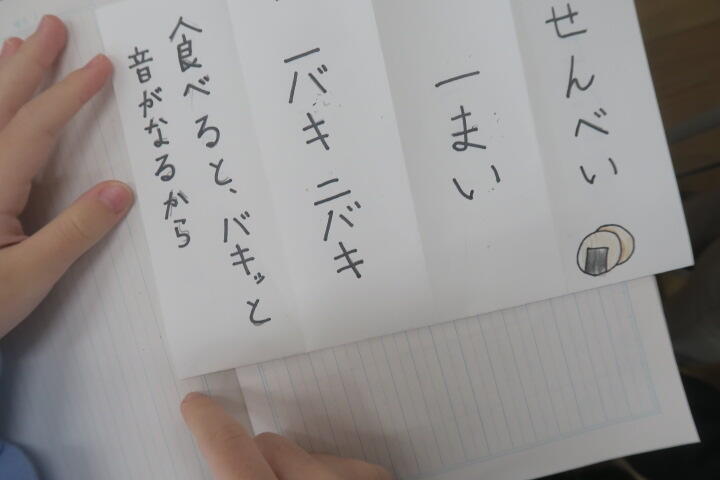 せんべい
一まい
一バキ 二バキ
食べると、バキッと
音がなるから